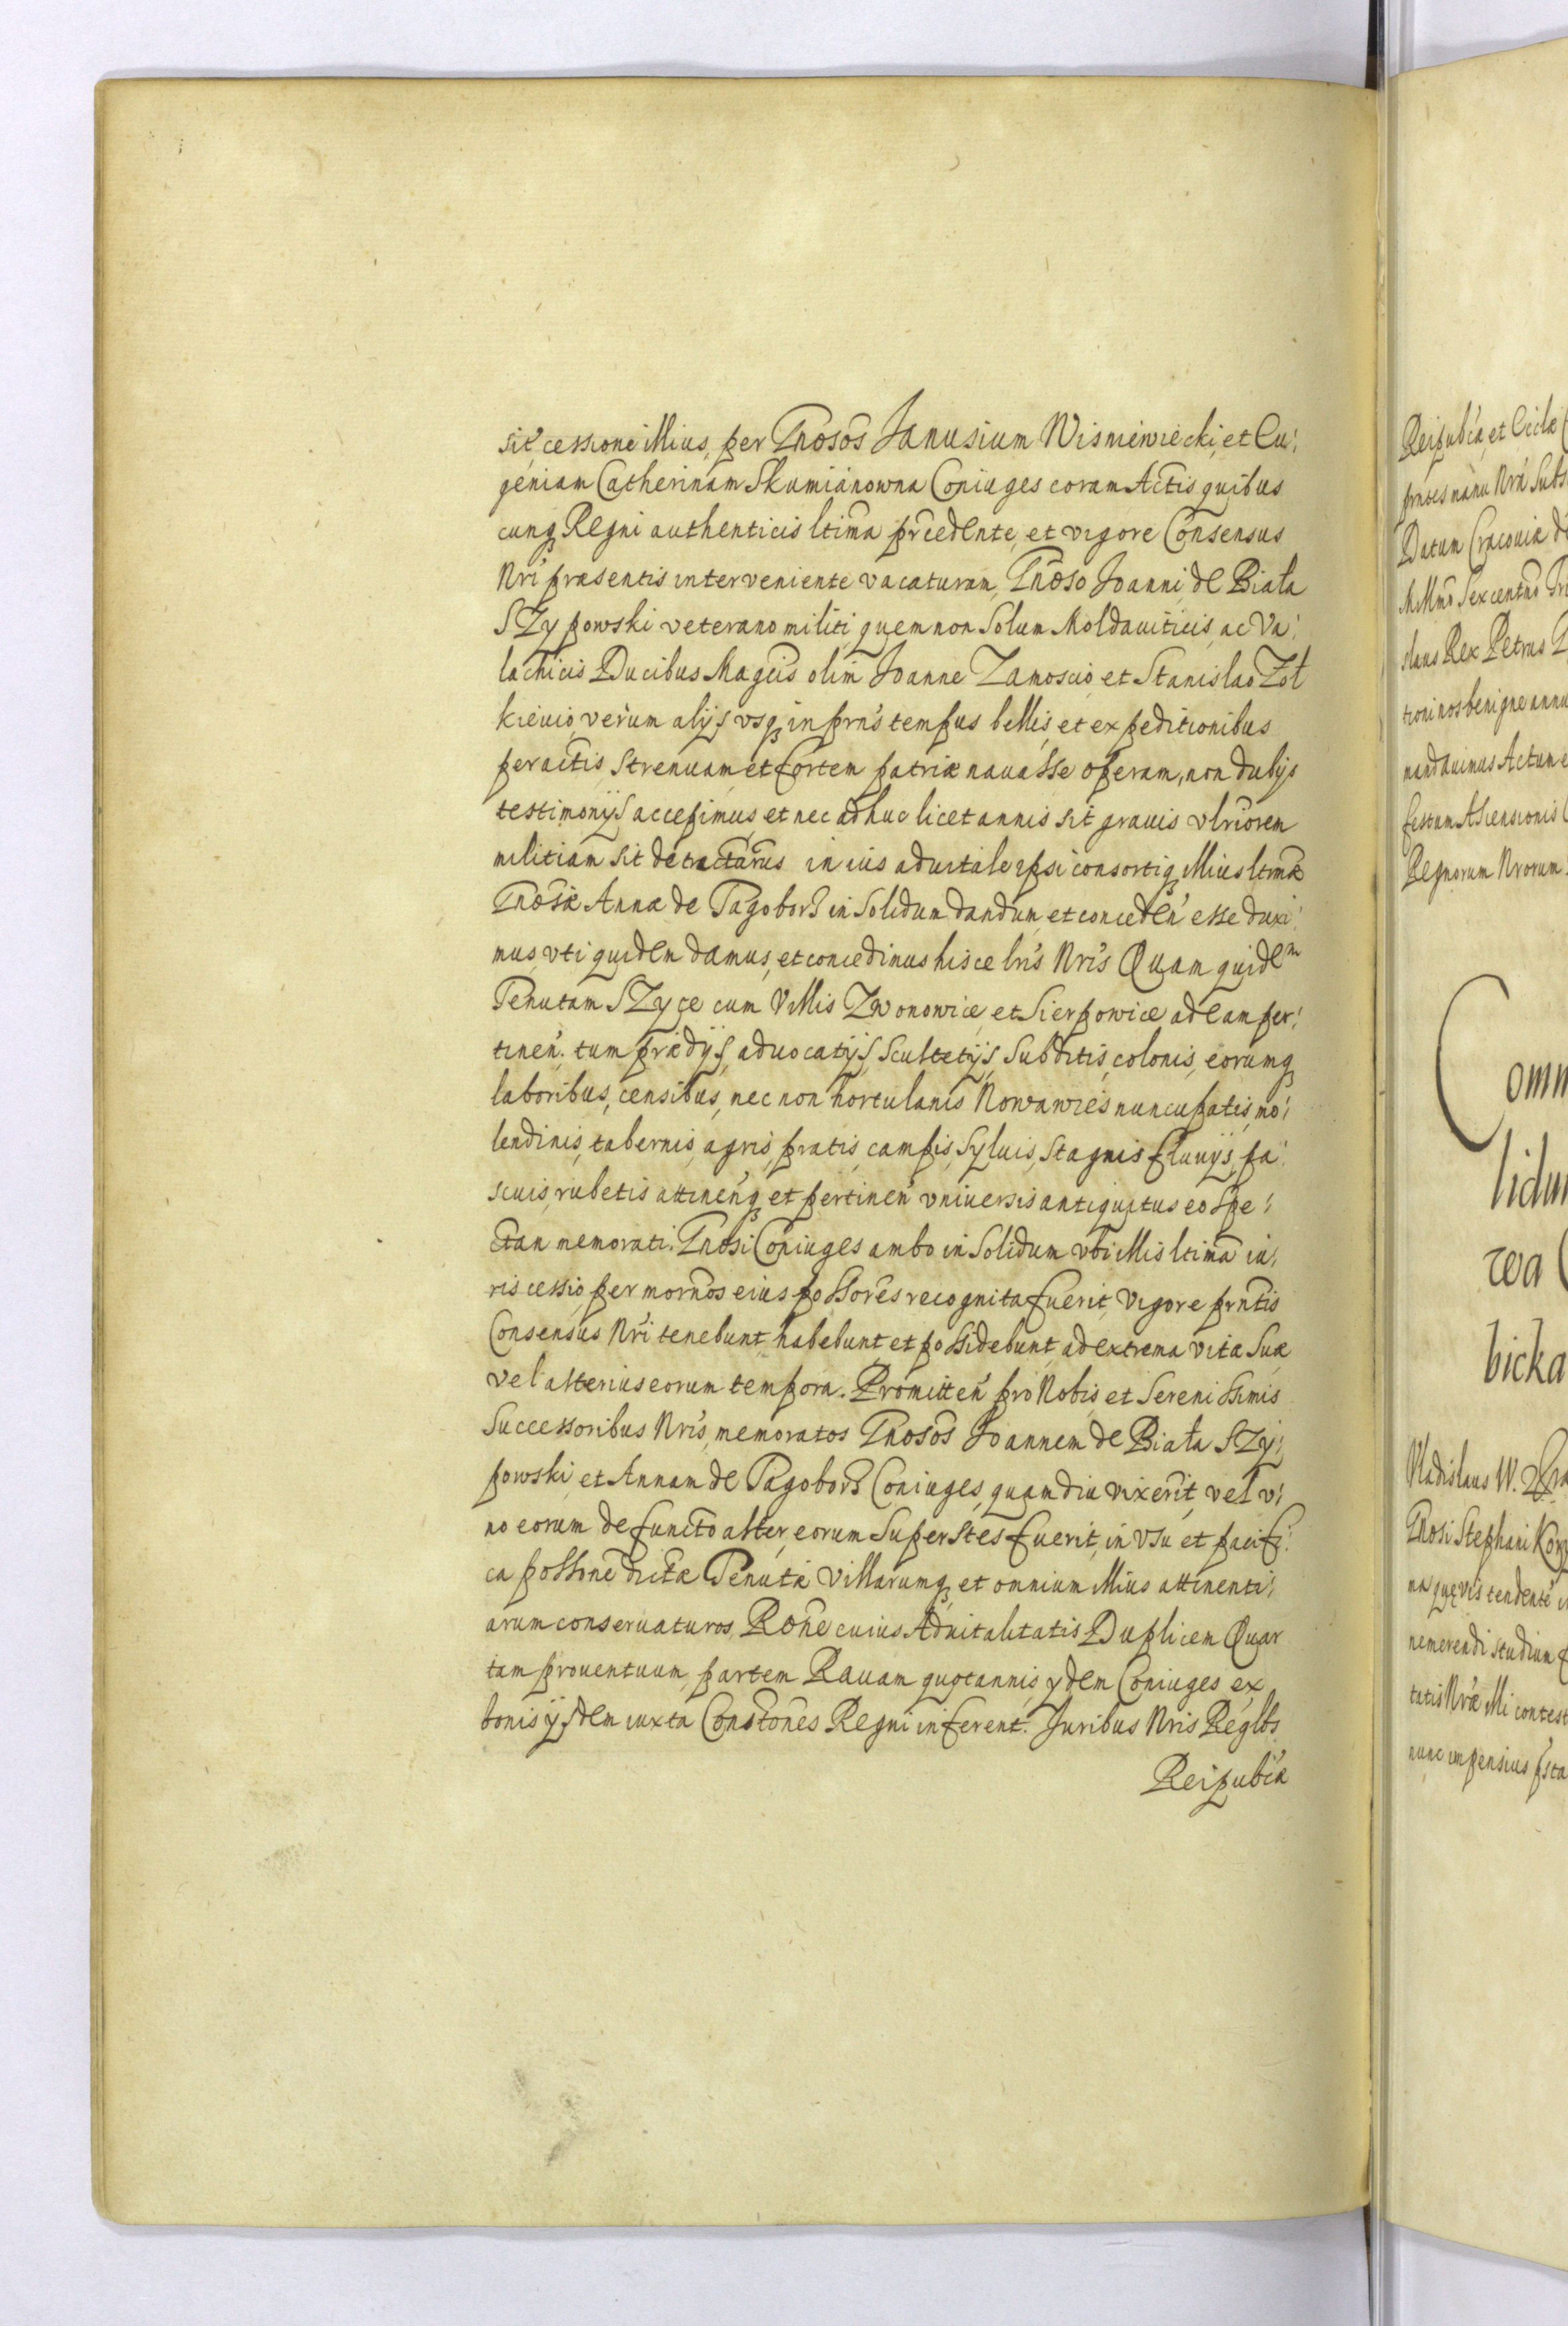 sit, cessione illius, per Gnosos Janusium Wisniewiecki, et Eu:
geniam Catherinam Skumianowna Coniuges coram Actis quibus
cunq Regni authenticis ltima prcedente, et vigore Consensus
Nri praesentis interveniente vacaturam, Gnoso Joanni de Biała
SZypowski veterano militi quem non Solum Moldauiticis, ac Va:
lachicis Ducibus Magcis olim Joanne Zamoscio et Stanislao Zoł
kieuio, verum alijs vsq in prns tempus bellis, et expeditionibus
peractis, Strenuam et fortem patriae nauasse operam, non dubijs
testimonijs accepimus, et nec adhuc licet annis sit grauis vlriorem
militiam sit detractarus in ius aduitale ipsi consortiq illius ltmae
Gnosae Annae de Pagobors in Solidum dandum, et conceden esse duxi:
mus, vti quidem damus, et concedimus hisce lris Nris Quam quidem
Tenutam SZyce cum Villis Zwonowice, et Sierpowice ad eam per:
tinen. tum praedijs, aduocatijs, Scultetijs, Subditis, colonis, eorumq
laboribus, censibus, nec non hortulanis Nowawies nuncupatis, mo:
lendinis, tabernis, agris, pratis, campis, Syluis, Stagnis fluuijs, pa:
scuis, rubetis attinenq et pertinen vniuersis antiquitus eo Spe:
ctan memorati. Gnosi Coniuges ambo in Solidum vbi illis ltima iu:
ris cessio per mornos eius possores recognita fuerit, vigore prntis
Consensus Nri tenebunt, habebunt et possidebunt, ad extrema vitae Suae
vel alterius eorum tempora. Promitten pro Nobis, et Serenissimis
Successoribus Nris, memoratos Gnosos Joannem de Biała SZy:
powski, et Annam de Pagobors Coniuges, quamdiu vixerit, vel v:
no eorum defuncto alter, eorum Superstes fuerit, in vsu et pacifi:
ca possione dictae Tenutae Villarumq, et omnium illius attinenti:
arum conseruaturos, Rone cuius Aduitalitatis Duplicem Quar
tam prouentuum, partem Rauam quotannis, ydem Coniuges ex
bonis ijsdem iuxta Constones Regni inferent. Juribus Nris Reglbs
Reipublcae
Reipublcae, et Ecclae
prntes manu Nra Subs
Datum Cracouiae di
Millmo Sexcentmo Tri
slaus Rex Petrus
tioni nos benigne annu
mandauimus Actum e
festum Ascensionis
Regnorum Nrorum
Comm
lidum
wa
bicka
Vladislaus IV.
Gnosi Stephani Kory
na quęvis tendente
nemerendi studium
tatis Nrae illi contest
nunc impensius